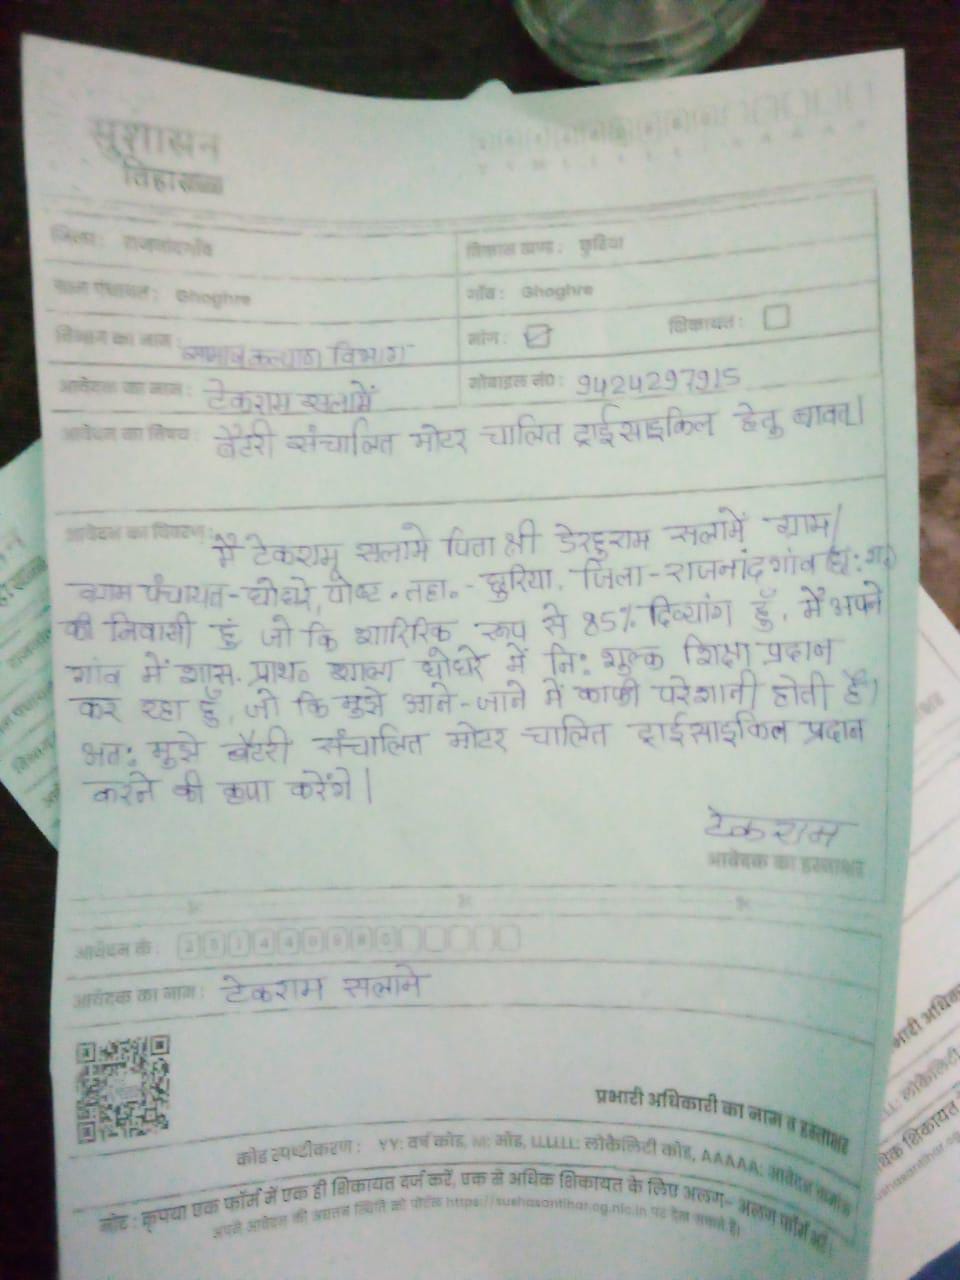 सुशासन
तिहार
जिला: राजनांदगाँव
विकास खण्ड: छुरिया
ग्राम पंचायत: Ghoghre
गाँव: Ghoghre
विभाग का नाम: समाज कल्याण विभाग
मांग:
शिकायत:
आवेदक का नाम: टेकराम सलामें
मोबाइल नं0: 9424297915
आवेदन का विषय: बैटरी संचालित मोटर चालित ट्राईसाइकिल हेतु बावत्।
आवेदन का विवरण:
मैं टेकराम सलामे पिता श्री डेरहुराम सलामें ग्राम/
ग्राम पंचायत-घोघरे, पोष्ट. तहा.- छुरिया, जिला-राजनांदगांव
की निवासी हुं जो कि शारिरिक रूप से 85% दिव्यांग हूँ, मैं अपने
गांव में शास. प्राथ. शाला घोघरे में नि: शुल्क शिक्षा प्रदान
कर रहा हूँ, जो कि मुझे आने-जाने में काफी परेशानी होती है।
अत: मुझे बैटरी संचालित मोटर चालित ट्राईसाइकिल प्रदान
करने की कृपा करेंगे।
टेकराम
आवेदक का हस्ताक्षर
आवेदन क्र:
आवेदक का नाम: टेकराम सलामे
प्रभारी अधिकारी का नाम व हस्ताक्षर
कोड स्पष्टीकरण: YY: वर्ष कोड, M: मोड, LLLLLL: लोकेलिटी कोड, AAAAA: आवेदन क्रमांक
नोट: कृपया एक फॉर्म में एक ही शिकायत दर्ज करें, एक से अधिक शिकायत के लिए अलग- अलग फॉर्म भरें।
अपने आवेदन की अद्यतन स्थिति को पोर्टल https://sushasantihar.cg.nic.in पर देख सकते हैं।